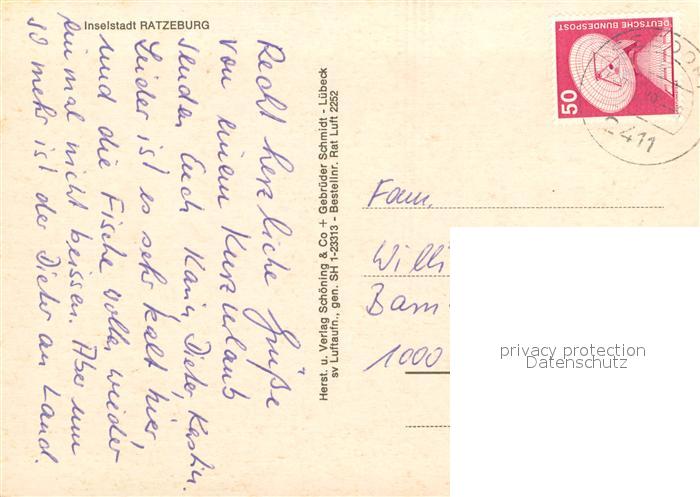 Inselstadt RATZEBURG
Recht herzliche Grüße
von einem Kurzurlaub
senden Euch Karin, Dieter, Kastin.
Leider ist es sehr kalt hier,
und die Fische wollen wieder
einmal nicht beissen. Aber um
so mehr ist der Dieter an Land.
Herst. u. Verlag Schöning & Co + Gebrüder Schmidt - Lübeck
sv Luftaufn., gen. SH 1-23313 - Bestellnr. Rat Luft 2252
DEUTSCHE BUNDESPOST
50
2411
Fam.
Willi
Bam
1000
privacy protection
Datenschutz